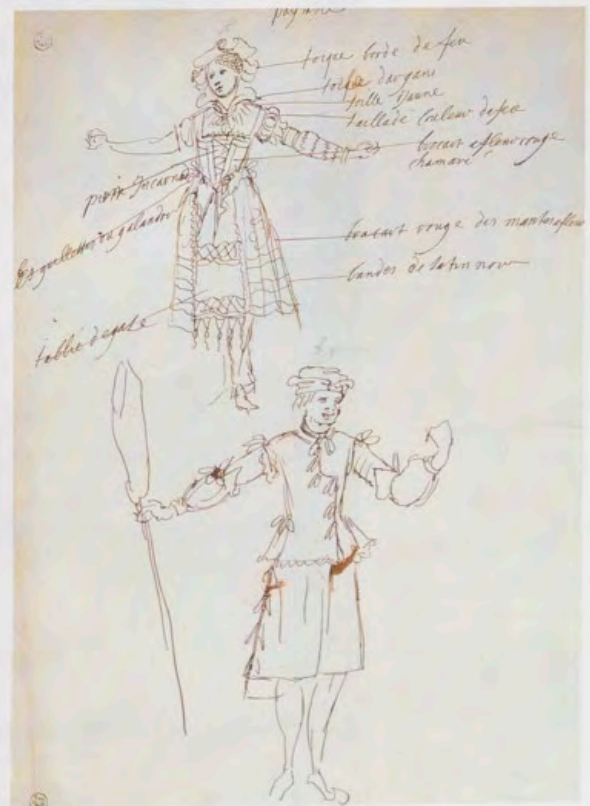 paÿsane
toque borde de feu
toille dargans
toille Jaune
taillade couleur de feu
brocart a fleur rouge
chamaré
Incarna
brocart rouge des manches a fleur
bandes de satin noir
tablié de gase